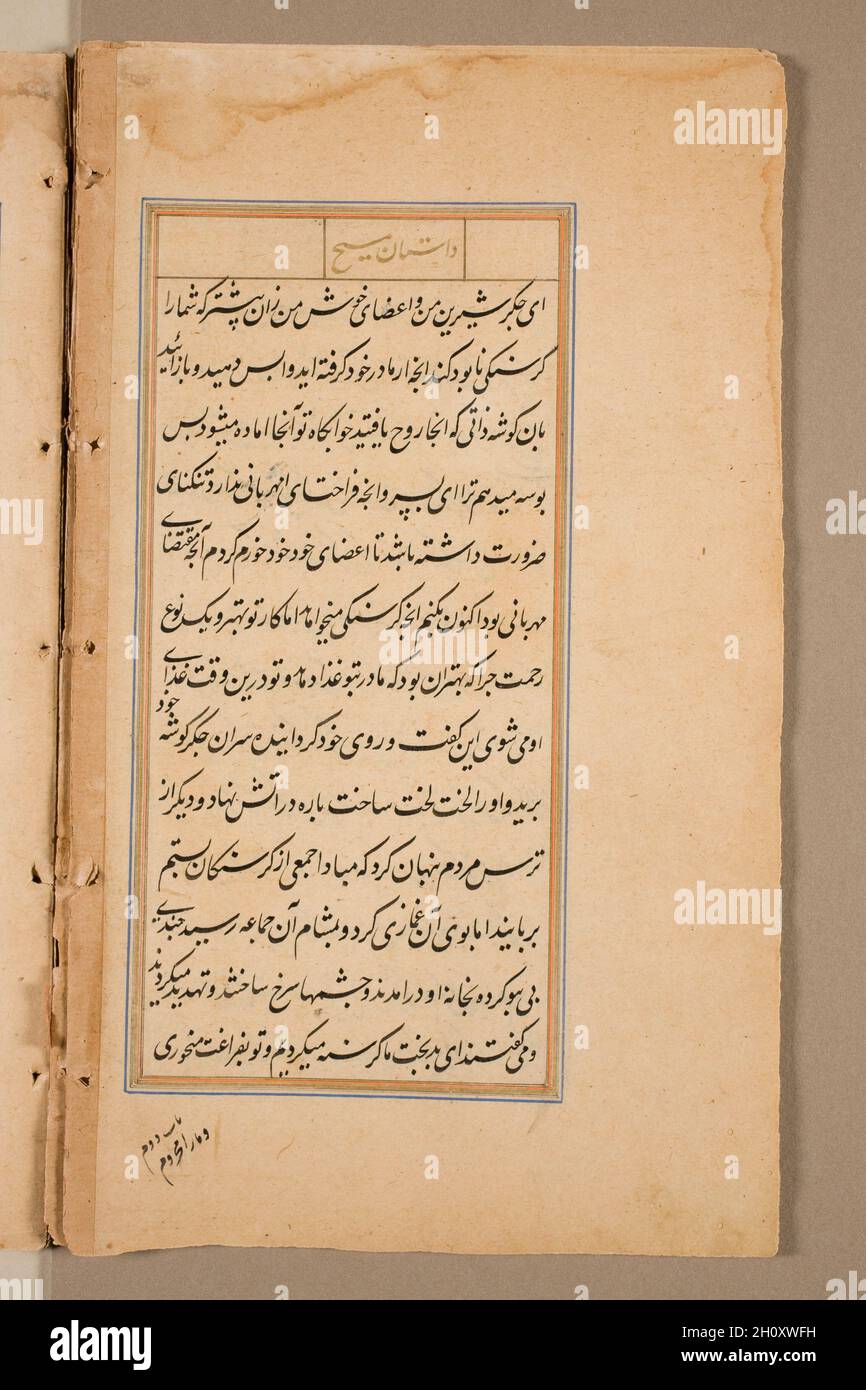 داستان مسیح
ای جگر شیرین من و اعضای خوش من زان پیشتر که شما را
گرسنگی نابود کند انچه از مادر خود گرفته اید واپس دهید و باز ائید
بان گوشه ذاتی که انجا روح یافتید خوابگاه تو آنجا اماده میشود پس
بوسه میدهم ترا ای پسر وانچه فراختای مهربانی ندارد تنگنای
ضرورت داشته باشد تا اعضای خود خود خورم کردم آنچه مقتضای
مهربانی بود اکنون بکنم انچه گرسنگی میخواهد اما کار تو بهتر و یک نوع
رحمت چرا که بهتر ان بود که مادر بتو غذا دهد و تو درین وقت غذای
او می شوی این گفت و روی خود گردانیده سر ان جگر گوشه خود
برید و او را لخت لخت ساخت پاره در اتش نهاد و دیگر از
ترس مردم پنهان کرد که مبادا جمعی از گرسنگان بستم
بربایند اما بوی آن غمازی کرد و بمشام آن جماعه رسید چندی
پی بو کرده بخانه او درامدند و چشمها سرخ ساختند و تهدید میکردند
و می گفتند ای بدبخت ما گرسنه میگردیم و تو بفراغت میخوری
باب دوم
و ما را محروم
alamy
Image ID: 2H0XWFH
www.alamy.com